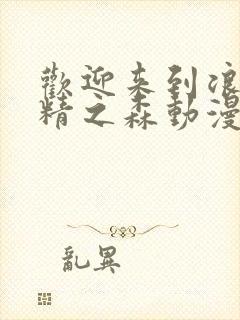 歡迎来到浪
精之森動漫
亂異